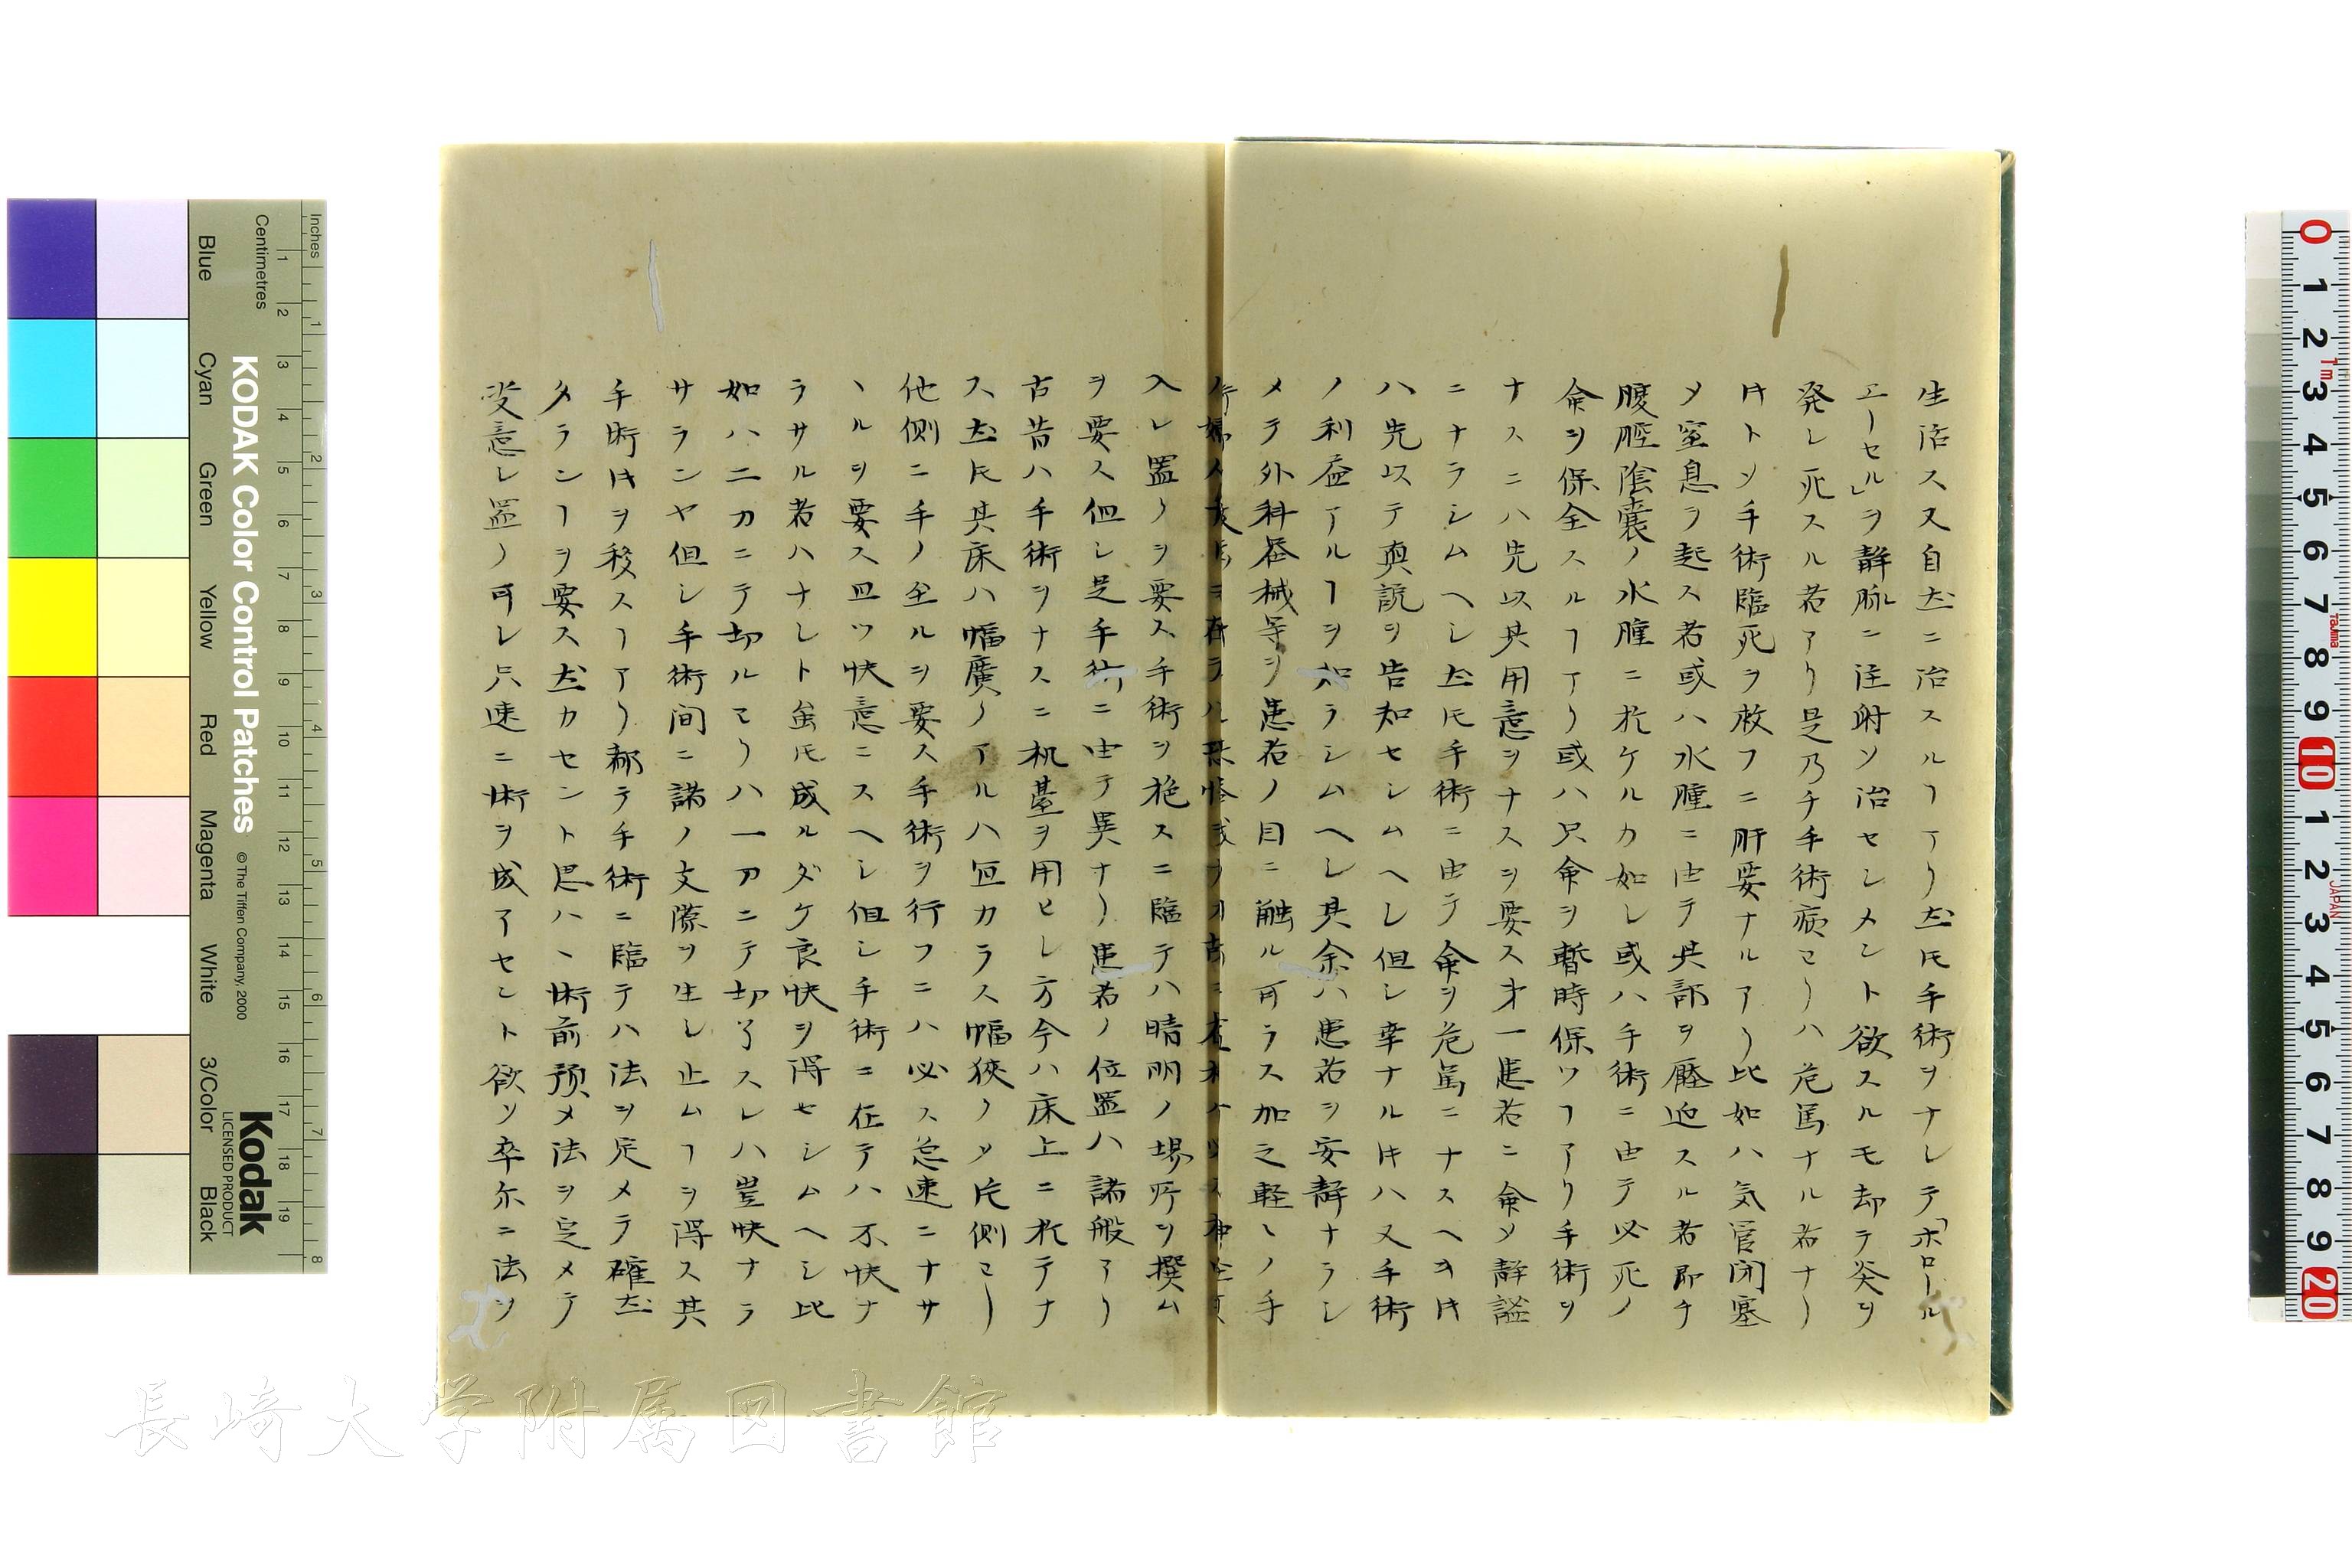 生活ス又自然ニ治スルヿアリ然𪜈手術ヲナシテ「ホロール
エーセル」ヲ静脉ニ注射ソ治セシメント欲スルモ却テ炎ヲ
発シ死スル者アリ是乃チ手術病ヨリハ危篤ナル者ナリ
片トソ手術臨死ヲ救フニ肝要ナルアリ比如ハ気管閉塞
メ窒息ヲ起ス者或ハ水腫ニ由テ其部ヲ壓迫スル者即チ
腹腔陰嚢ノ水腫ニ於ケルカ如シ或ハ手術ニ由テ必死ノ
命ヲ保全スルヿアリ或ハ只命ヲ暫時保ツヿアリ手術ヲ
ナスニハ先以其用意ヲナスヲ要ス第一患者ニ命メ静謐
ニナラシムヘシ然𪜈手術ニ由テ命ヲ危篤ニナスヘキ片
ハ先以テ真説ヲ告知セシムヘシ但シ幸ナル片ハ又手術
ノ利益アルヿヲ知ラシムヘシ其余ハ患者ヲ安静ナラシ
メテ外科器械等ヲ患者ノ目ニ触ル可ラス加之軽〻ノ手
入レ置クヲ要ス手術ヲ施スニ臨テハ晴明ノ場所ヲ撰ム
ヲ要ス但シ是手術ニ由テ異ナリ患者ノ位置ハ諸般アリ
古昔ハ手術ヲナスニ机基ヲ用ヒシ方今ハ床上ニ於テナ
ス然𪜈其床ハ幅廣クアルハ宜カラス幅狹クメ片側ヨリ
他側ニ手ノ至ルヲ要ス手術ヲ行フニハ必ス急速ニナサ
ヽルヲ要ス且ツ快意ニスヘシ但シ手術ニ在テハ不快ナ
ラサル者ハナシト虽𪜈成ルダケ良快ヲ得セシムヘシ比
如ハ二刀ニテ切ルヨリハ一刀ニテ切了スレハ豈快ナラ
サランヤ但シ手術間ニ諸ノ支障ヲ生シ止ムヿヲ得ス其
手術片ヲ移スヿアリ都テ手術ニ臨テハ法ヲ定メテ確然
タランヿヲ要ス然カセント思ハヽ術前預メ法ヲ定メテ
受意シ置ク可シ只速ニ術ヲ成了セント欲ソ卒尓ニ法ヲ
KODAK Color Control Patches
©The Tiffen Company, 2000
Kodak
LICENSED PRODUCT
Inches
Centimetres
Blue
Cyan
Green
Yellow
Red
Magenta
White
3/Color
Black
長崎大学附属図書館